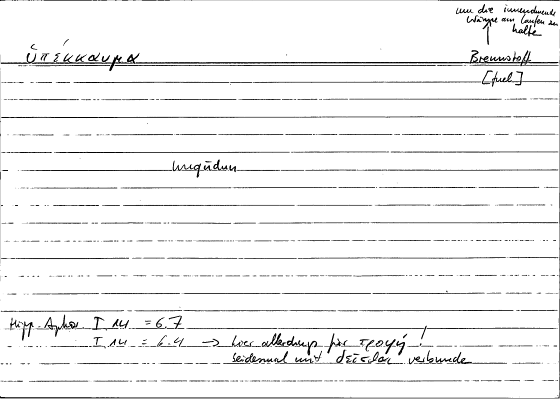 um die innewohnende
Wärme am laufen zu
halten
ὑπέκκαυμα
Brennstoff
[fuel]
Hipp. Aphor. I 14 = 6.7
I 14 = 6.4 → hier allerdings für τροφή!
beidesmal mit δεῖσθαι verbunden